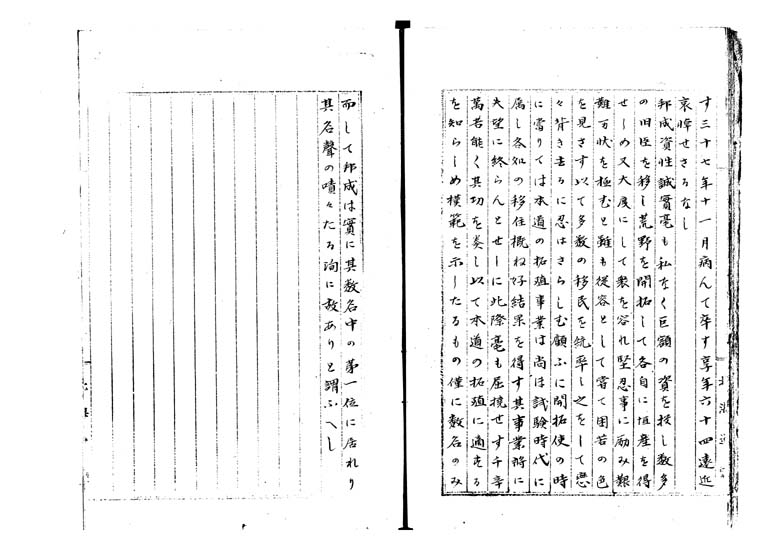 す三十七年十一月病んて卒す享年六十四遠近
哀悼せさるなし
邦成資性誠實毫も私なく巨額の資を投し数多
の旧臣を移し荒野を開拓して各自に恒産を得
せしめ又大度にして衆を容れ堅忍事に励み艱
難万状を極むと雖も從容として嘗て困苦の色
を見さす以て多数の移民を統率し之をして戀
々背き去るに忍はさらしむ顧ふに開拓使の時
に當りては本道の拓殖事業は尚ほ試験時代に
属し各処の移住概ね好結果を得す其事業将に
失望に終らんとせしに此際毫も屈撓せす千辛
萬苦能く其功を奏し以て本道の拓殖に適する
を知らしめ模範を示したるもの僅に数名のみ
而して邦成は實に其数名中の第一位に居れり
其名聲の嘖々たる洵に故ありと謂ふへし
北海道